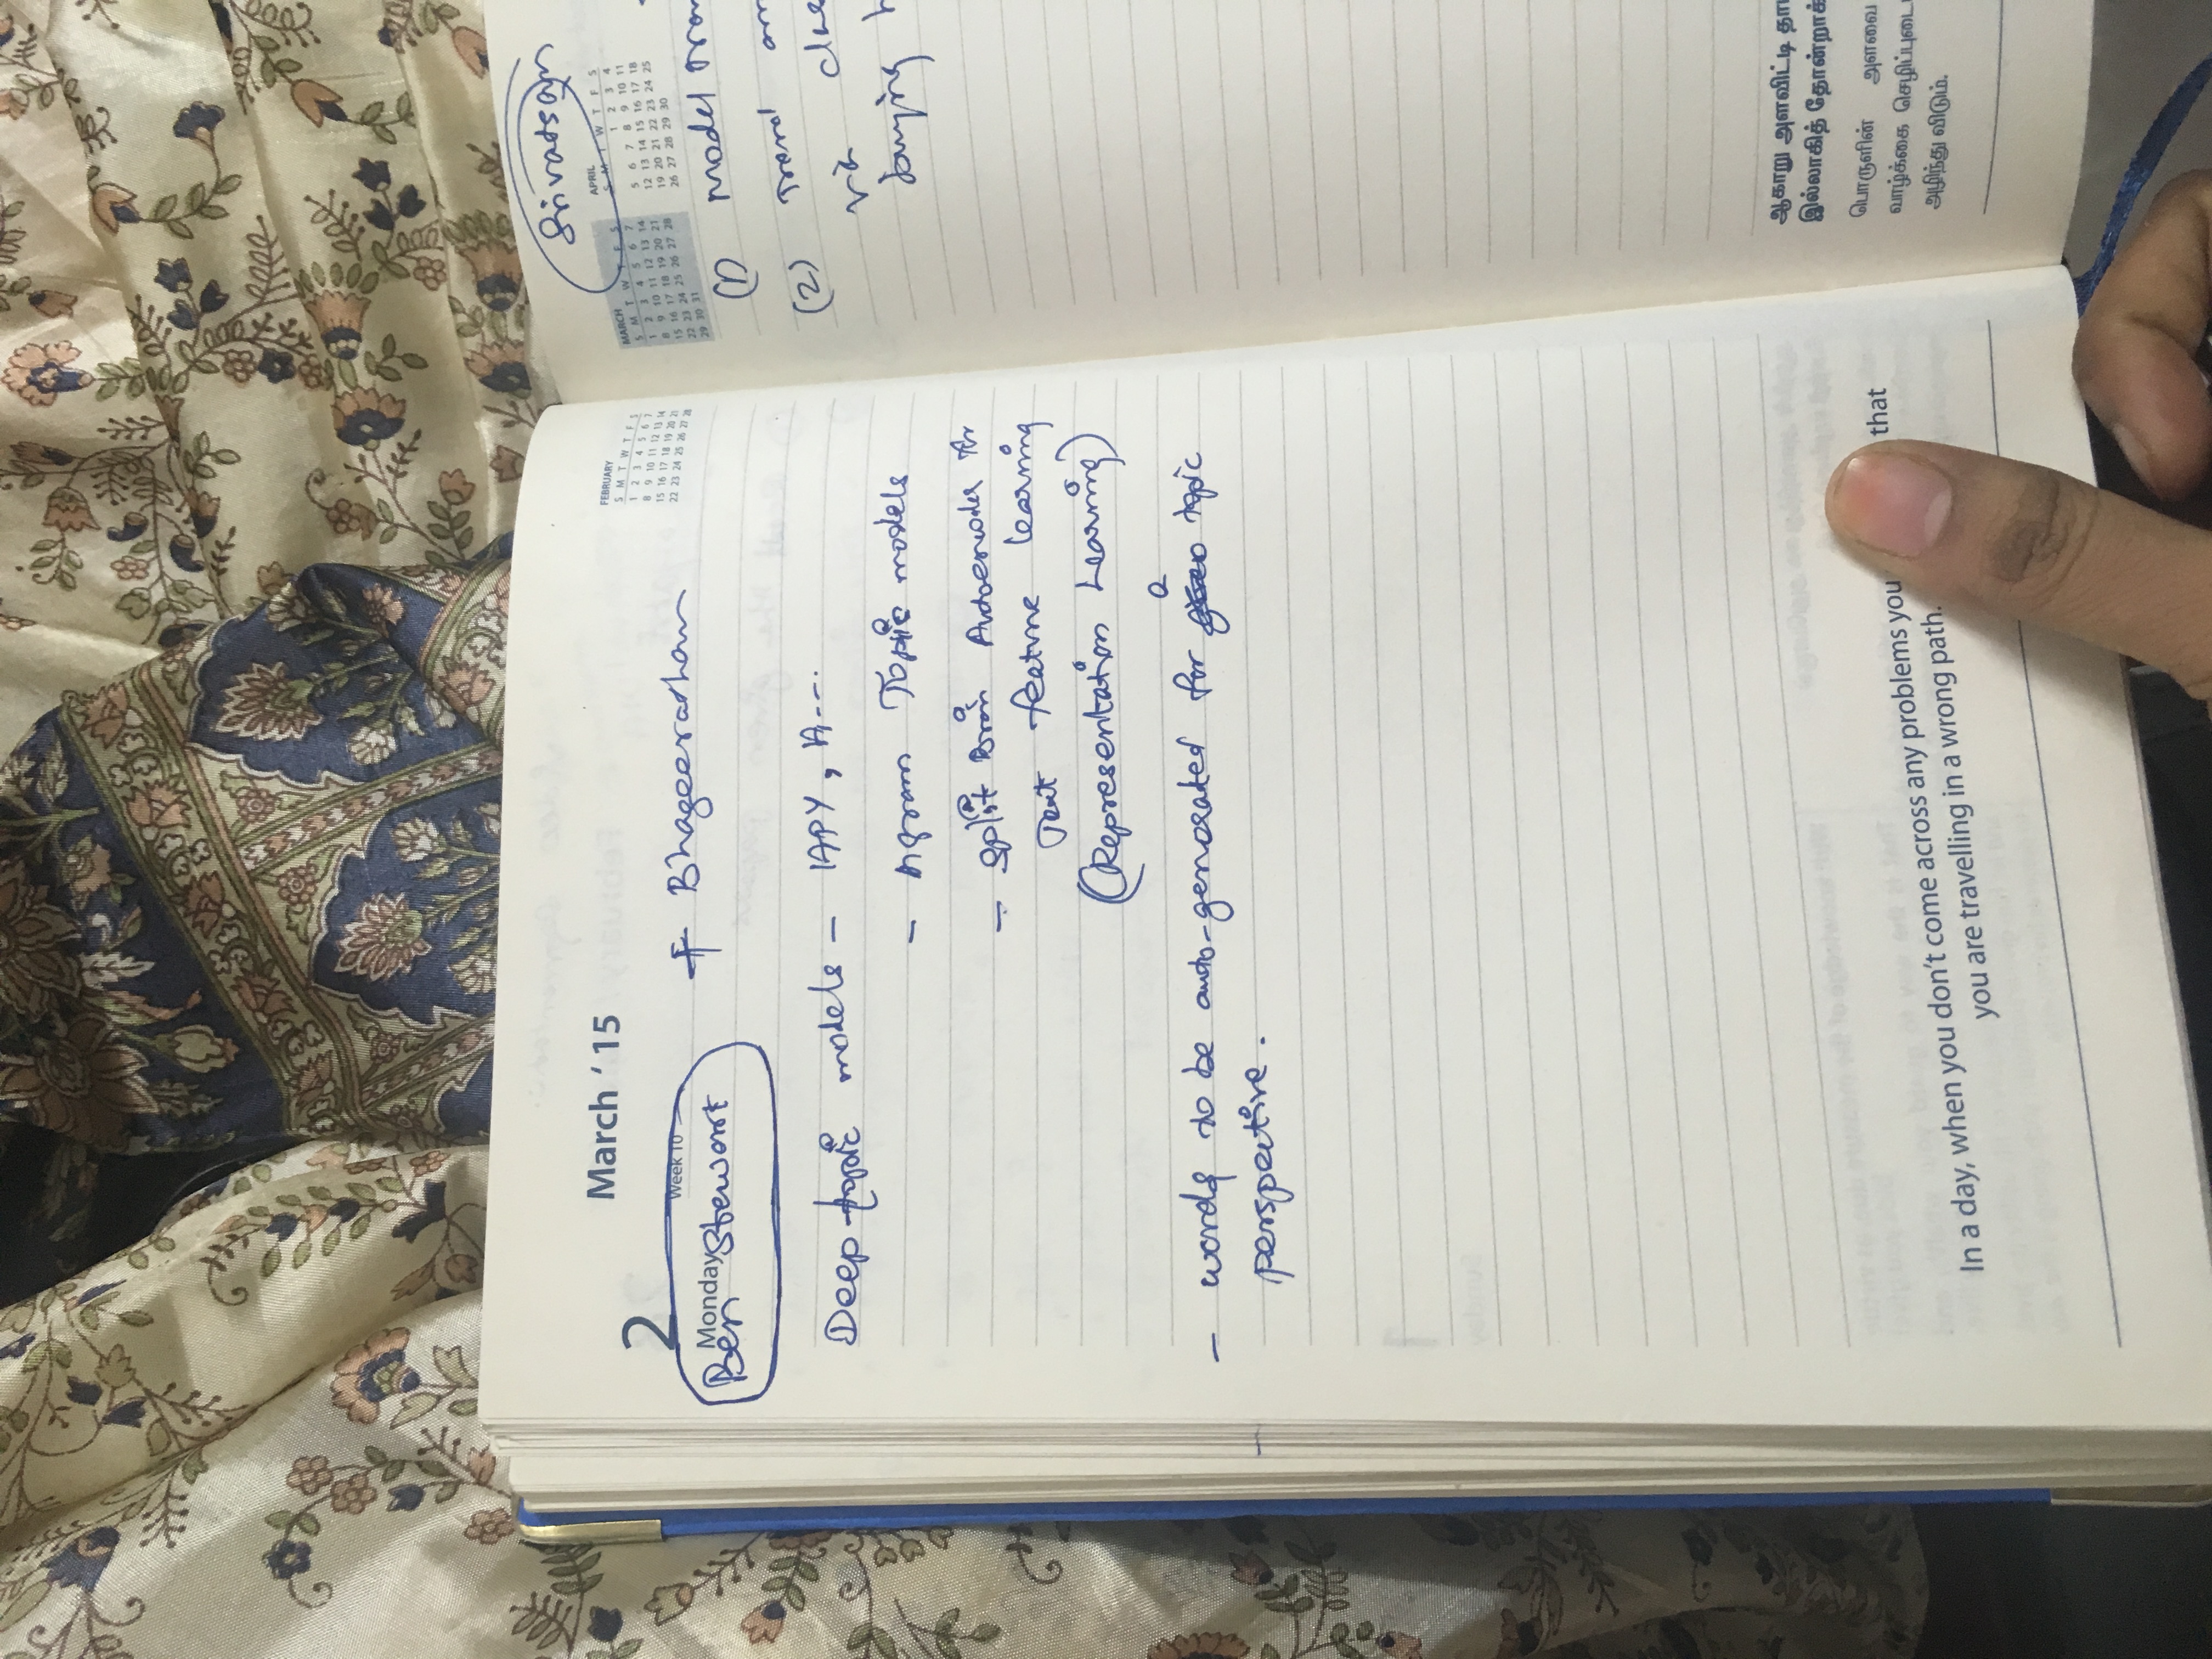 March ‘ 15
2
Week 10
Monday
Ben Stewart
+ Bhageerathan
FEBRUARY
S M T W T F S
1 2 3 4 5 6 7
8 9 10 11 12 13 14
15 16 17 18 19 20 21
22 23 24 25 26 27 28
Deep topic models – IAPY,
– ngram Topic models
– Split Brain Autoencoder for
Text feature learning
(Representation Learning)
– words to be auto-generated for a topic
perspective.
In a day, when you don’t come across any problems you that
you are travelling in a wrong path.
Srivatsan
MARCH
S M T W T F S
1 2 3 4 5 6 7
8 9 10 11 12 13 14
15 16 17 18 19 20 21
22 23 24 25 26 27 28
29 30 31
APRIL
S M T W T F S
1 2 3 4
5 6 7 8 9 10 11
12 13 14 15 16 17 18
19 20 21 22 23 24 25
26 27 28 29 30
(1) Model
(2) Trend
via
buying
ஆகாறு அளவிட்டி
இல்லாகித் தோன்றாக்
பொருளின் அளவை
வாழ்க்கை
அழிந்து விடும்.